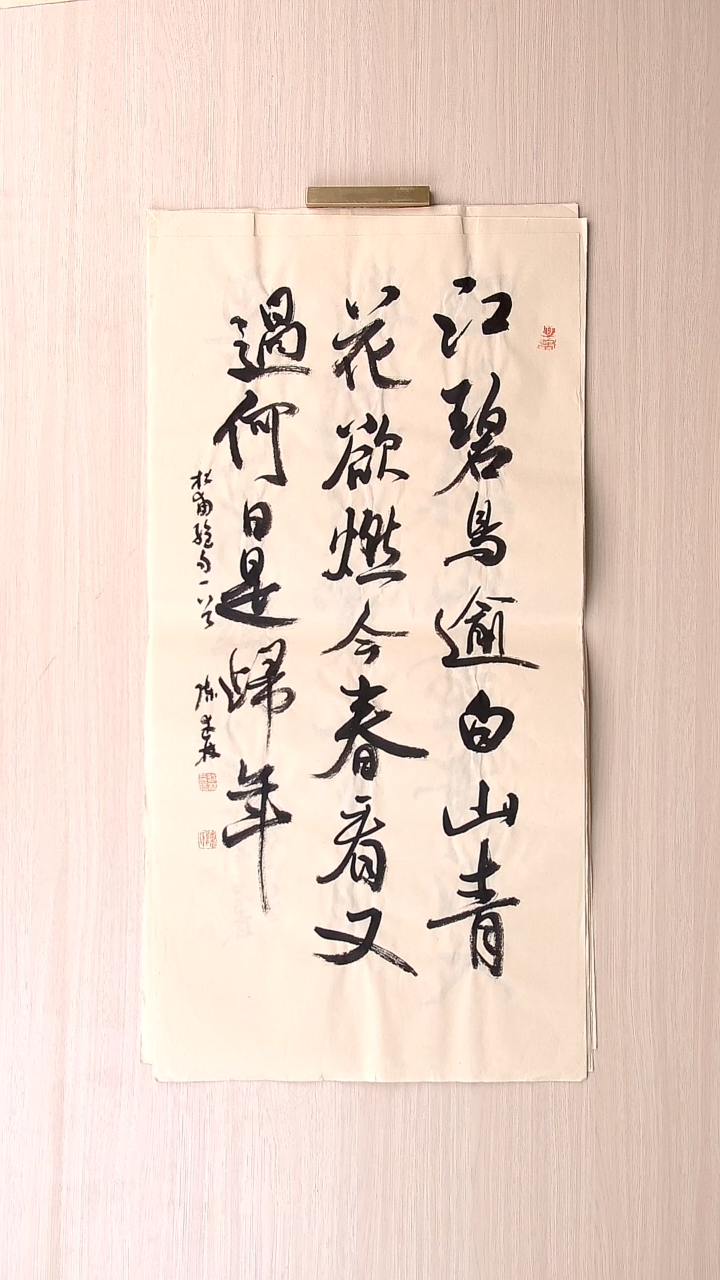 江碧鳥逾白山青
花欲燃今春看又
過何日是歸年
杜甫絕句一首 陈